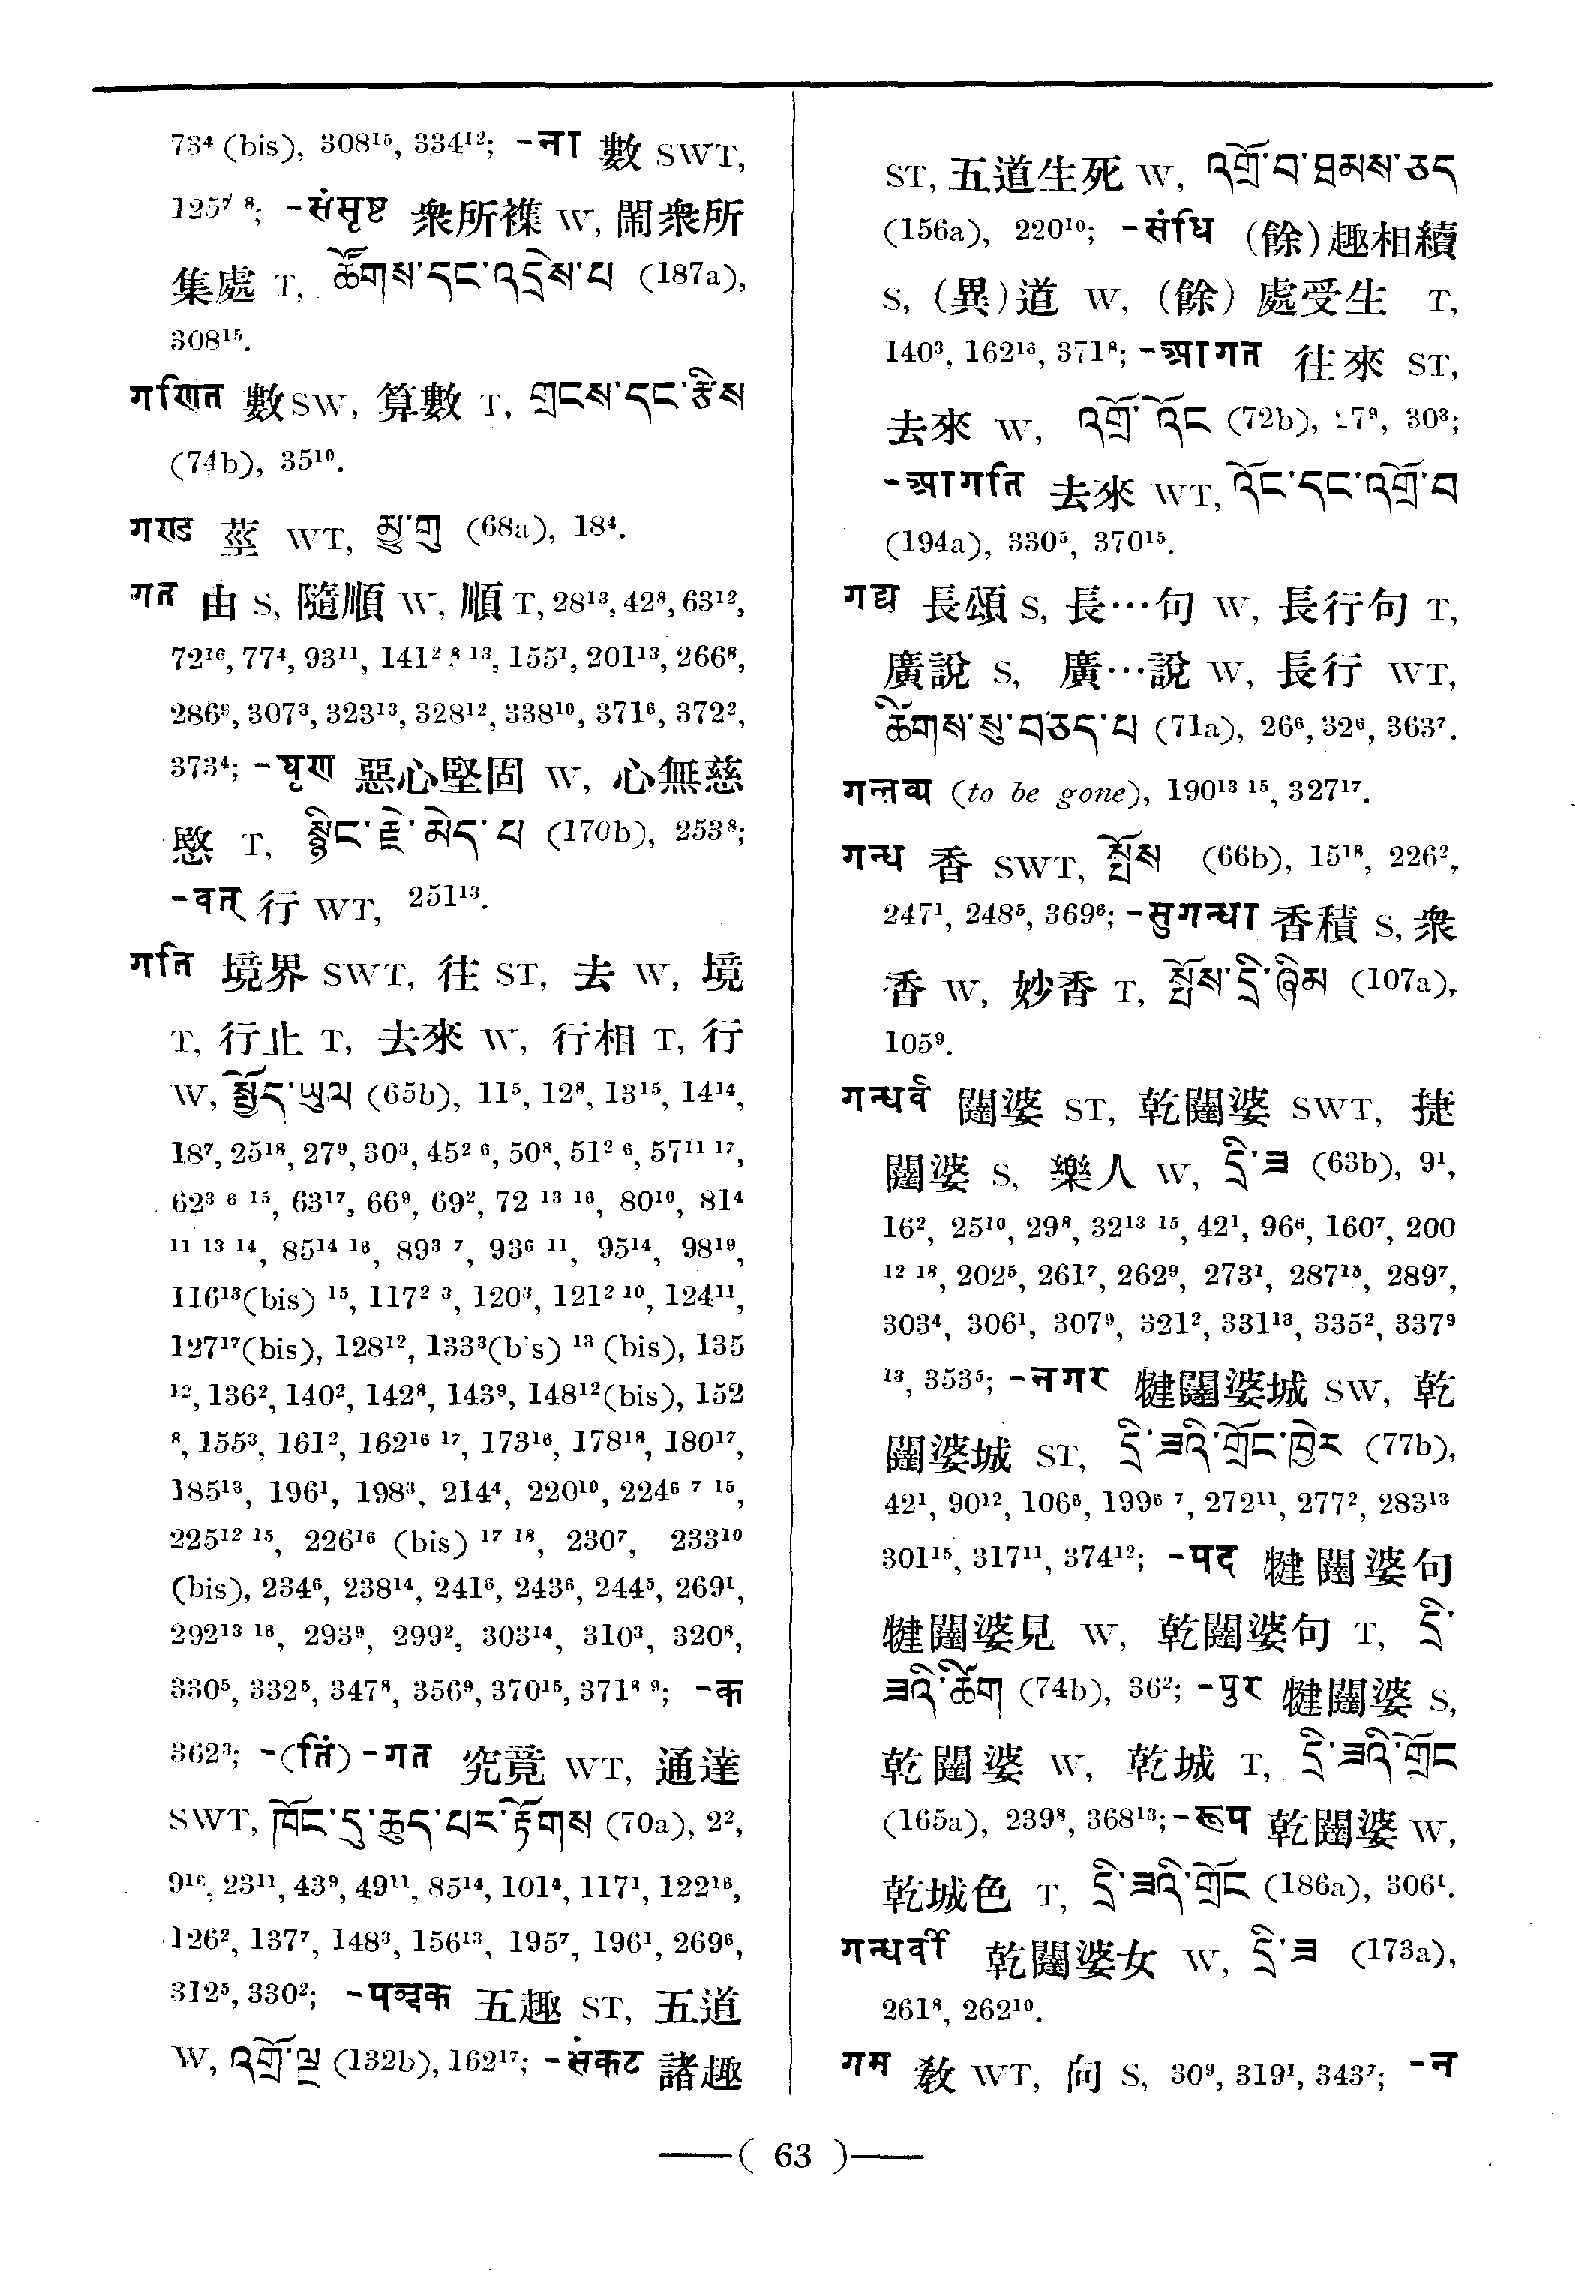 73⁴ (bis), 308¹⁵, 334¹²; -ना 數 SWT,
125⁷ ⁸; -संसृष्ट 衆所襍 W, 閙衆所
集處 T, ཚོགས་དང་འདྲེས་པ (187a),
308¹⁵.
गणित 數SW, 算數 T, གྲངས་དང་རྩིས
(74b), 35¹⁰.
गण्ड 莖 WT, སྨྱུ་གུ (68a), 18⁴.
गत 由 S, 隨順 W, 順 T, 28¹³, 42⁸, 63¹²,
72¹⁶, 77⁴, 93¹¹, 141² ⁸ ¹³, 155¹, 201¹³, 266⁸,
286⁹, 307³, 323¹³, 328¹², 338¹⁰, 371⁶, 372²,
373⁴; -घृण 惡心堅固 W, 心無慈
愍 T, སྙིང་རྗེ་མེད་པ (170b), 253⁸;
-वत् 行 WT, 251¹³.
गति 境界 SWT, 徃 ST, 去 W, 境
T, 行止 T, 去來 W, 行相 T, 行
W, སྤྱོད་ཡུལ (65b), 11⁵, 12⁸, 13¹⁵, 14¹⁴,
18⁷, 25¹⁸, 27⁹, 30³, 45² ⁶, 50⁸, 51² ⁶, 57¹¹ ¹⁷,
62³ ⁶ ¹⁵, 63¹⁷, 66⁹, 69², 72 ¹³ ¹⁶, 80¹⁰, 81⁴
¹¹ ¹³ ¹⁴, 85¹⁴ ¹⁶, 89³ ⁷, 93⁶ ¹¹, 95¹⁴, 98¹⁹,
116¹³(bis) ¹⁵, 117² ³, 120³, 121² ¹⁰, 124¹¹,
127¹⁷(bis), 128¹², 133³(bis) ¹³ (bis), 135
¹², 136², 140², 142⁸, 143⁹, 148¹²(bis), 152
⁸, 155³, 161², 162¹⁶ ¹⁷, 173¹⁶, 178¹⁸, 180¹⁷,
185¹³, 196¹, 198³, 214⁴, 220¹⁰, 224⁶ ⁷ ¹⁵,
225¹² ¹⁵, 226¹⁶ (bis) ¹⁷ ¹⁸, 230⁷, 233¹⁰
(bis), 234⁶, 238¹⁴, 241⁶, 243⁶, 244⁵, 269¹,
292¹³ ¹⁶, 293⁹, 299², 303¹⁴, 310³, 320⁸,
330⁵, 332⁵, 347⁸, 356⁹, 370¹⁵, 371⁸ ⁹; -क
362³; -(तिं) -गत 究竟 WT, 通達
SWT, ཁོང་དུ་ཆུད་པར་རྟོགས (70a), 2²,
9¹⁶, 23¹¹, 43⁹, 49¹¹, 85¹⁴, 101⁴, 117¹, 122¹⁶,
126², 137⁷, 148³, 156¹³, 195⁷, 196¹, 269⁶,
312⁵, 330²; -पञ्चक 五趣 ST, 五道
W, འགྲོ་ལྔ (132b), 162¹⁷; -संकट 諸趣
ST, 五道生死 W, འགྲོ་བ་ཐམས་ཅད
(156a), 220¹⁰; -संधि (餘)趣相續
S, (異)道 W, (餘) 處受生 T,
140³, 162¹⁶, 371⁸; -आगत 徃來 ST,
去來 W, འགྲོ་འོང (72b), 27⁹, 30³;
-आगति 去來 WT, འོང་དང་འགྲོ་བ
(194a), 330⁵, 370¹⁵.
गद्य 長頌 S, 長…句 W, 長行句 T,
廣說 S, 廣…說 W, 長行 WT,
ཚིགས་སུ་བཅད་པ (71a), 26⁶, 32⁶, 363⁷.
गन्तव्य (to be gone), 190¹³ ¹⁵, 327¹⁷.
गन्ध 香 SWT, སྤོས (66b), 15¹⁸, 226²,
247¹, 248⁵, 369⁶; -सुगन्धा 香積 S, 衆
香 W, 妙香 T, སྤོས་དྲི་ཞིམ (107a),
105⁹.
गन्धर्व 闥婆 ST, 乾闥婆 SWT, 捷
闥婆 S, 樂人 W, དྲི་ཟ (63b), 9¹,
16², 25¹⁰, 29⁸, 32¹³ ¹⁵, 42¹, 96⁶, 160⁷, 200
¹² ¹⁸, 202⁵, 261⁷, 262⁹, 273¹, 287¹⁵, 289⁷,
303⁴, 306¹, 307⁹, 321², 331¹³, 335², 337⁹
¹³, 353⁵; -नगर 犍闥婆城 SW, 乾
闥婆城 ST, དྲི་ཟའི་གྲོང་ཁྱེར (77b),
42¹, 90¹², 106⁶, 199⁶ ⁷, 272¹¹, 277², 283¹³
301¹⁵, 317¹¹, 374¹²; -पद 犍闥婆句
犍闥婆見 W, 乾闥婆句 T, དྲི་
ཟའི་ཚིག (74b), 36²; -पुर 犍闥婆 S,
乾闥婆 W, 乾城 T, དྲི་ཟའི་གྲོང
(165a), 239⁸, 368¹³; -रूप 乾闥婆 W,
乾城色 T, དྲི་ཟའི་གྲོང (186a), 306¹.
गन्धर्वी 乾闥婆女 W, དྲི་ཟ (173a),
261⁸, 262¹⁰.
गम 敎 WT, 向 S, 30⁹, 319¹, 343⁷; -न
—( 63 )—